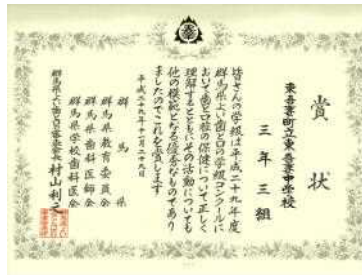 賞状
東吾妻町立東吾妻中学校
三年三組
皆さんの学級は平成二十九年度
群馬県よい歯と口の学級コンクールに
おいて歯と口腔の保健について正しく
理解するとともにその活動についても
他の模範となる優秀なものであり
ましたのでこれを賞します
平成二十九年十一月二十九日
群馬県
群馬県教育委員会
群馬県歯科医師会
群馬県学校歯科医会
村山利之